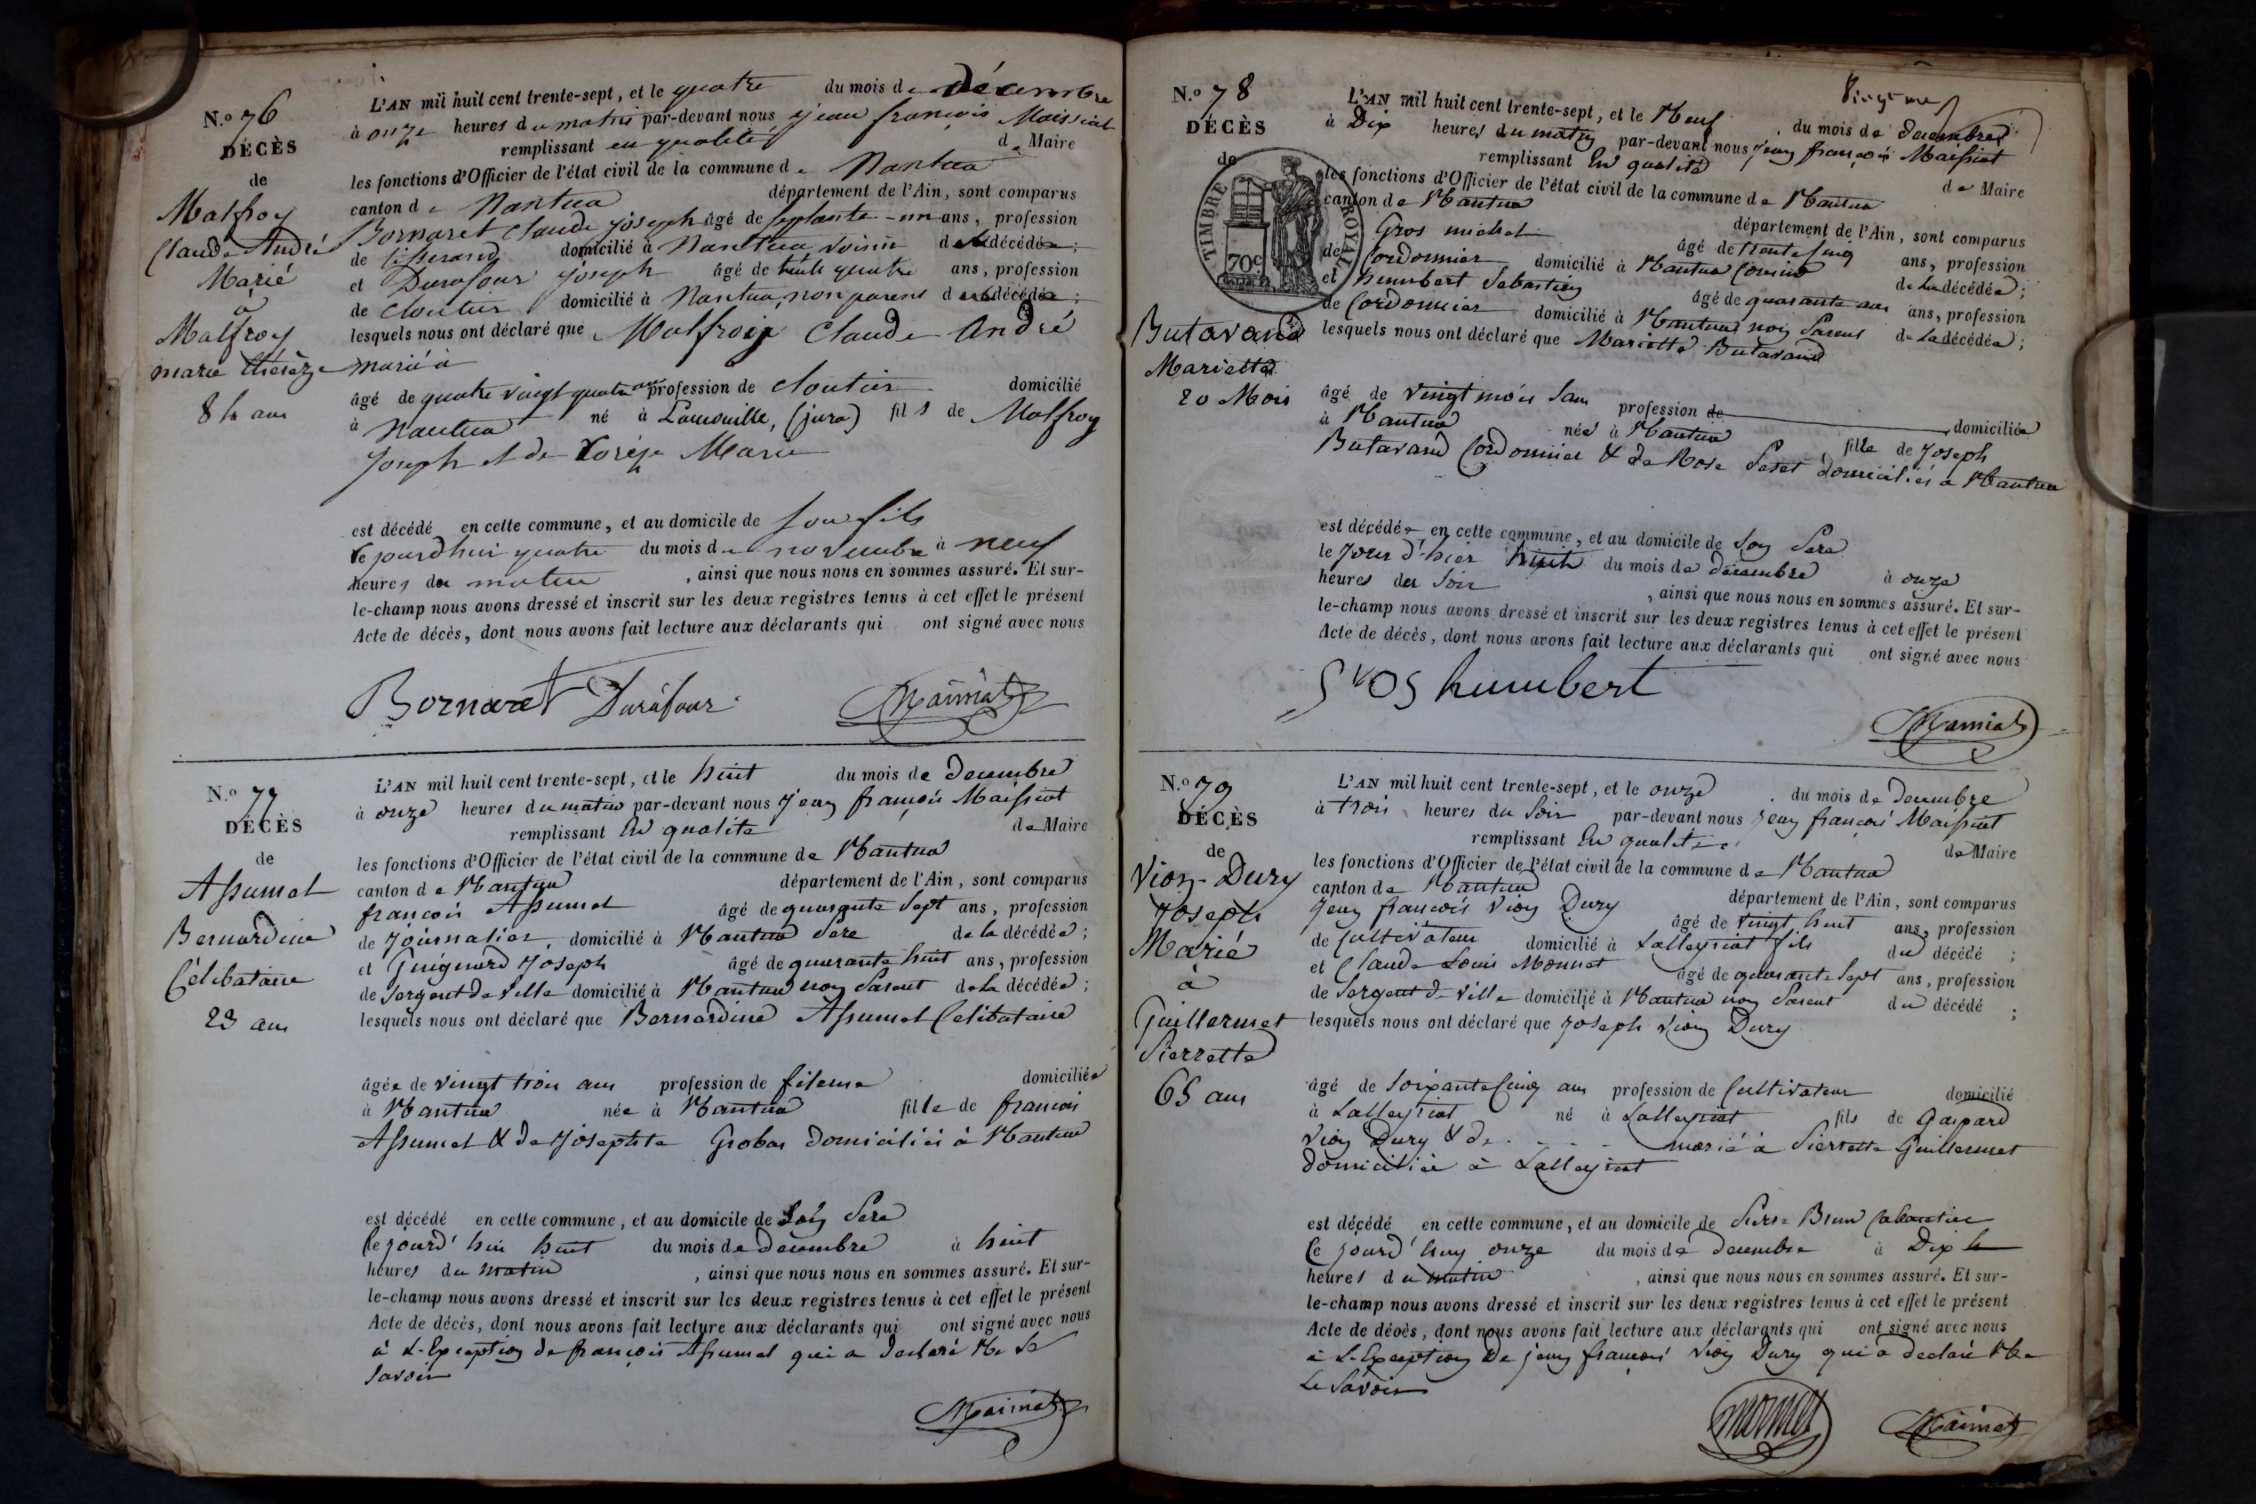 N.º 76
DÉCÈS
de
Malfroy
Claude André
Marié
à
Malfroy
marie thérèze
84 ans
L'AN mil huit cent trente-sept, et le quatre du mois de décembre
à onze heures du matin par-devant nous jean françois Maissiat
remplissant en qualité de Maire
les fonctions d'Officier de l'état civil de la commune de Nantua
canton de Nantua département de l'Ain, sont comparus
Bornaret Claude joseph âgé de septante-un ans, profession
de tisserand domicilié à Nantua, voisin du décédé;
et Durafour joseph âgé de trente quatre ans, profession
de cloutier domicilié à Nantua, non parent du décédé;
lesquels nous ont déclaré que Malfroix Claude André
marié à
âgé de quatre vingt quatre ans profession de cloutier domicilié
à Nantua né à Lamouille, (jura) fils de Malfroy
Joseph et de Marie
est décédé en cette commune, et au domicile de son fils
ce jourd'hui quatre du mois de novembre à neuf
heures du matin, ainsi que nous nous en sommes assuré. Et sur-
le-champ nous avons dressé et inscrit sur les deux registres tenus à cet effet le présent
Acte de décès, dont nous avons fait lecture aux déclarants qui ont signé avec nous
Bornaret Durafour Maissiat
N.º 77
DÉCÈS
de
Assumel
Bernardine
Célibataire
23 ans
L'AN mil huit cent trente-sept, et le huit du mois de decembre
à onze heures du matin par-devant nous Jean françois Maissiat
remplissant En qualité de Maire
les fonctions d'Officier de l'état civil de la commune de Nantua
canton de Nantua département de l'Ain, sont comparus
françois Assumel âgé de quarante sept ans, profession
de journalier, domicilié à Nantua Pere de la décédée;
et Guignard Joseph âgé de quarante huit ans, profession
de Sergent de Ville domicilié à Nantua non Parent de la décédée;
lesquels nous ont déclaré que Bernardine Assumel Celibataire
âgée de vingt trois ans profession de fileuse domiciliée
à Nantua née à Nantua fille de françois
Assumel & de Josephte Grobas domiciliés à Nantua
est décédé en cette commune, et au domicile de Son Pere
Ce jourd'hui huit du mois de decembre à huit
heures du matin, ainsi que nous nous en sommes assuré. Et sur-
le-champ nous avons dressé et inscrit sur les deux registres tenus à cet effet le présent
Acte de décès, dont nous avons fait lecture aux déclarants qui ont signé avec nous
à L'Exception de françois Assumel qui a declaré Ne Le
Savoir
Maissiat
N.º 78
DÉCÈS
de
TIMBRE ROYAL
70c
Butavand
Mariette
20 Mois
L'AN mil huit cent trente-sept, et le Neuf du mois de decembre
à Dix heures du matin par-devant nous Jean françois Maissiat
remplissant En qualité de Maire
les fonctions d'Officier de l'état civil de la commune de Nantua
canton de Nantua département de l'Ain, sont comparus
Gros michel âgé de trente cinq ans, profession
de Cordonnier domicilié à Nantua Cousin de la décédée;
et humbert Sebastien âgé de quarante ans ans, profession
de Cordonnier domicilié à Nantua non Parent de la décédée;
lesquels nous ont déclaré que Mariette Butavand
âgé de vingt mois Sans profession de domiciliée
à Nantua née à Nantua fille de Joseph
Butavand Cordonnier & de Rose Peset domiciliés à Nantua
est décédée en cette commune, et au domicile de Son Pere
le Jour d'hier huit du mois de decembre à onze
heures du Soir, ainsi que nous nous en sommes assuré. Et sur-
le-champ nous avons dressé et inscrit sur les deux registres tenus à cet effet le présent
Acte de décès, dont nous avons fait lecture aux déclarants qui ont signé avec nous
gros humbert
Maissiat
N.º 79
DÉCÈS
de
Vion-Dury
Joseph
Marié
à
Guillermet
Pierrette
65 ans
L'AN mil huit cent trente-sept, et le onze du mois de decembre
à trois heures du Soir par-devant nous Jean françois Maissiat
remplissant En qualité de Maire
les fonctions d'Officier de l'état civil de la commune de Nantua
canton de Nantua département de l'Ain, sont comparus
Jean françois Vion Dury âgé de vingt huit ans, profession
de Cultivateur domicilié à Lalleyriat fils du décédé;
et Claude Louis Monnet âgé de quarante Sept ans, profession
de Sergent de Ville domicilié à Nantua non Parent du décédé;
lesquels nous ont déclaré que Joseph Vion Dury
âgé de Soixante Cinq ans profession de Cultivateur domicilié
à Lalleyriat né à Lalleyriat fils de Gaspard
Vion Dury & de - - - - marié à Pierrette Guillermet
domiciliée à Lalleyriat
est décédé en cette commune, et au domicile de Pierre Brun Cabaretier
Ce jourd'huy onze du mois de decembre à Dix h
heures du matin, ainsi que nous nous en sommes assuré. Et sur-
le-champ nous avons dressé et inscrit sur les deux registres tenus à cet effet le présent
Acte de décès, dont nous avons fait lecture aux déclarants qui ont signé avec nous
à L'Exception de jean françois Vion Dury qui a declaré Ne
Le Savoir
monnet Maissiat